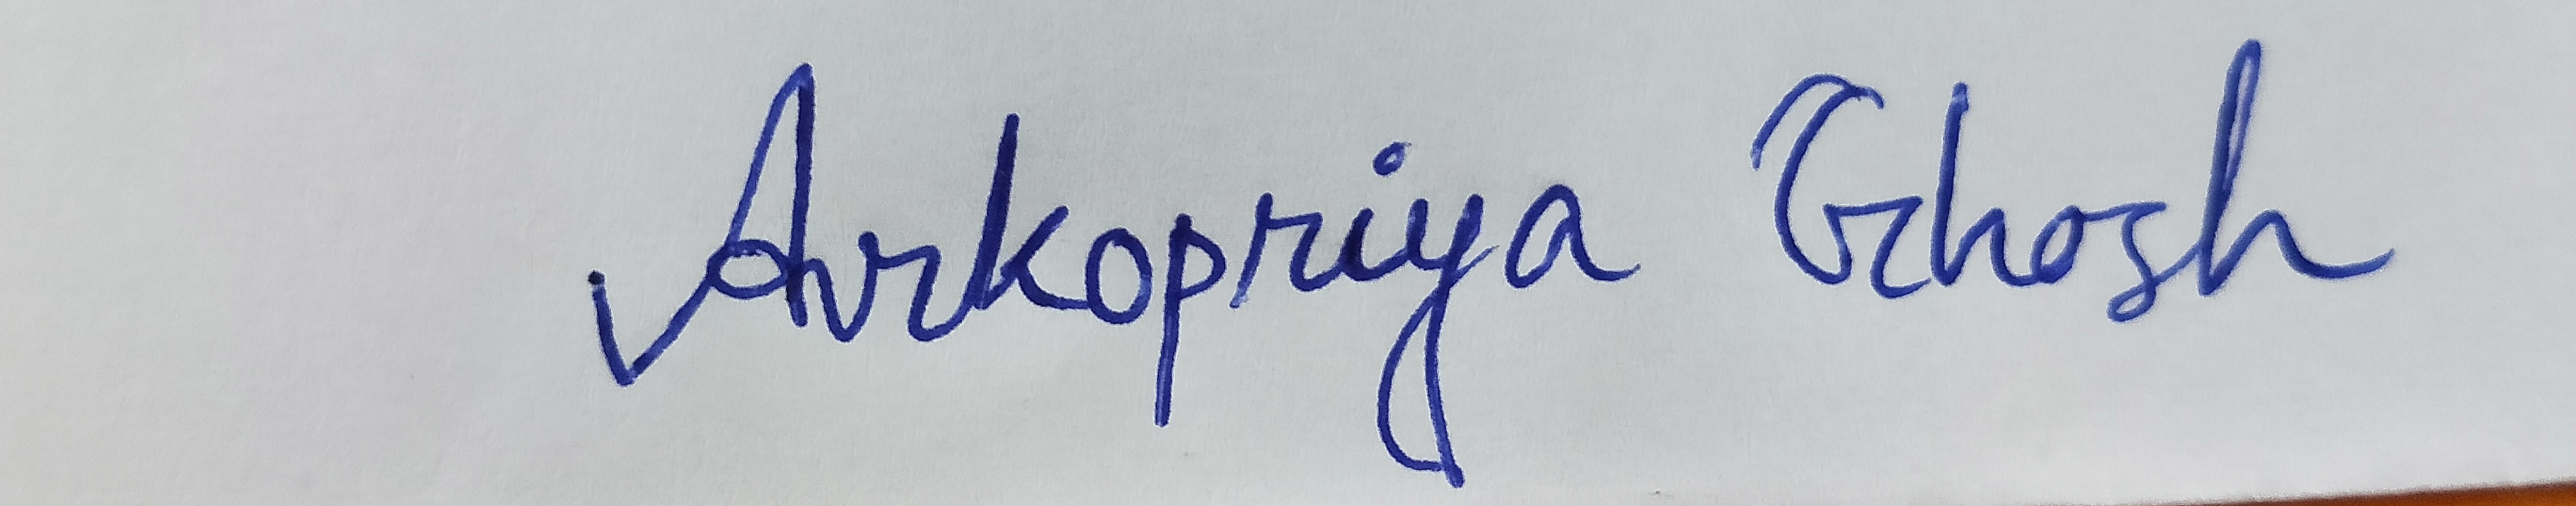 Arkopriya Ghosh